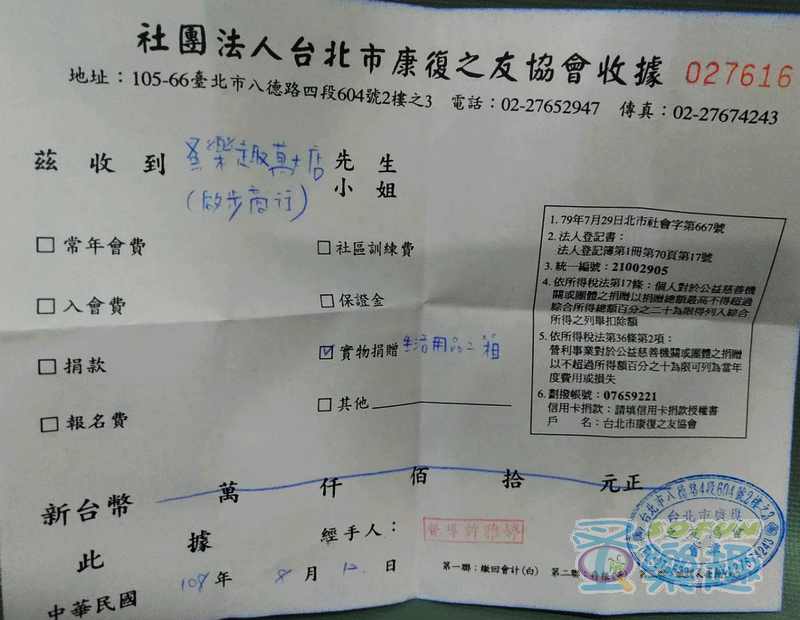 社團法人台北市康復之友協會收據 027616
地址：105-66臺北市八德路四段604號2樓之3 電話：02-27652947 傳真：02-27674243
茲收到 樂趣萬 店 先生
小姐
(啟步商行)
□常年會費
□入會費
□捐款
□報名費
□社區訓練費
□保證金
☑實物捐贈 生活用品二箱
□其他
1. 79年7月29日北市社會字第667號
2. 法人登記書：
法人登記簿第1冊第70頁第17號
3. 統一編號：21002905
4. 依所得稅法第17條：個人對於公益慈善機
關或團體之捐贈以捐贈總額最高不得超過
綜合所得總額百分之二十為限得列入綜合
所得之列舉扣除額
5. 依所得稅法第36條第2項：
營利事業對於公益慈善機關或團體之捐贈
以不超過所得額百分之十為限可列為當年
度費用或損失
6. 劃撥帳號：07659221
信用卡捐款：請填信用卡捐款授權書
戶 名：台北市康復之友協會
新台幣 萬 仟 佰 拾 元正
此據 經手人：
督導許雅婷
中華民國 108年 8月 12日
第一聯：繳回會計(白) 第二聯：
台北市八德路4段604號2樓之3
台北市康復
之友協會
SOFUN
樂趣